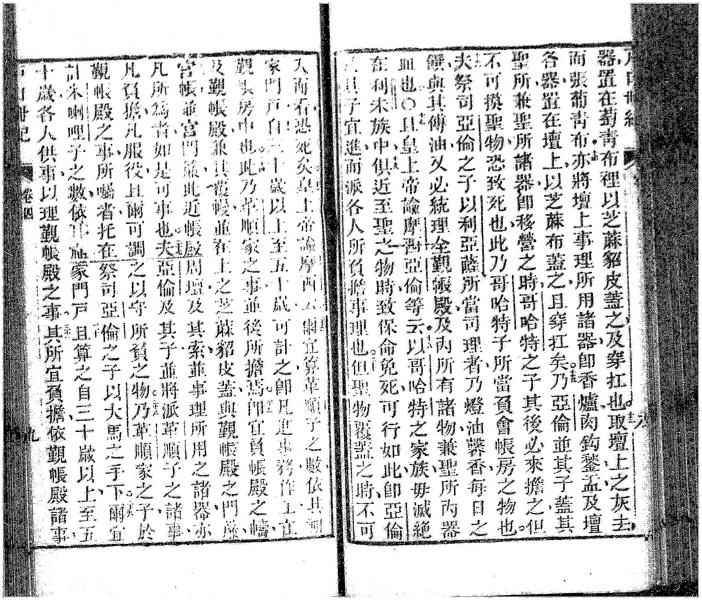 戶口冊紀
器置在葡青布裡以芝蔴貂皮蓋之及穿扛也取壇上之灰去
而張葡青布亦將壇上事理所用諸器卽香爐肉鈎鏊盂及壇
各器置在壇上以芝蔴布蓋之且穿扛矣乃亞倫並其子蓋其
聖所兼聖所諸器卽移營之時哥哈特之子其後必來擔之但
不可摸聖物恐致死也此乃哥哈特子所當負會帳房之物也
夫祭司亞倫之子以利亞薩所當司理者乃燈油馨香每日之
饌與其傳油又必統理全觀帳殿及內所有諸物兼聖所內器
皿也○且皇上帝諭摩西亞倫等云以哥哈特之家族毋滅絕
在利未族中俱近至聖之物時致保命免死可行如此卽亞倫
且子宜進而派各人所負擔事理也但聖物覆蓋之時不可
入而看恐死矣皇上帝諭摩西云爾宜算革順子之數依其
家門戶自三十歲以上至五十歲可計之卽凡進事務作工宜
觀帳房中也此乃革順家之事並後所擔焉卽宜負帳殿之幬
及觀帳殿兼其覆帳並在上之芝蔴貂皮蓋與觀帳殿之門簾
宮帳並宮門簾此近帳殿周壇及其索並事理所用之諸器亦
凡所爲者如是可事也夫亞倫及其子並將派革順子之諸事
凡負擔凡服役且爾可調之以守所負之物乃革順家之子於
觀帳殿之事所囑者托在祭司亞倫之子以大馬之手下爾宜
計米喇哩子之數依其家門戶且算之自三十歲以上至五
十歲各人供事以理觀帳殿之事其所宜負擔依觀帳殿諸事
戶口冊紀
卷四
九